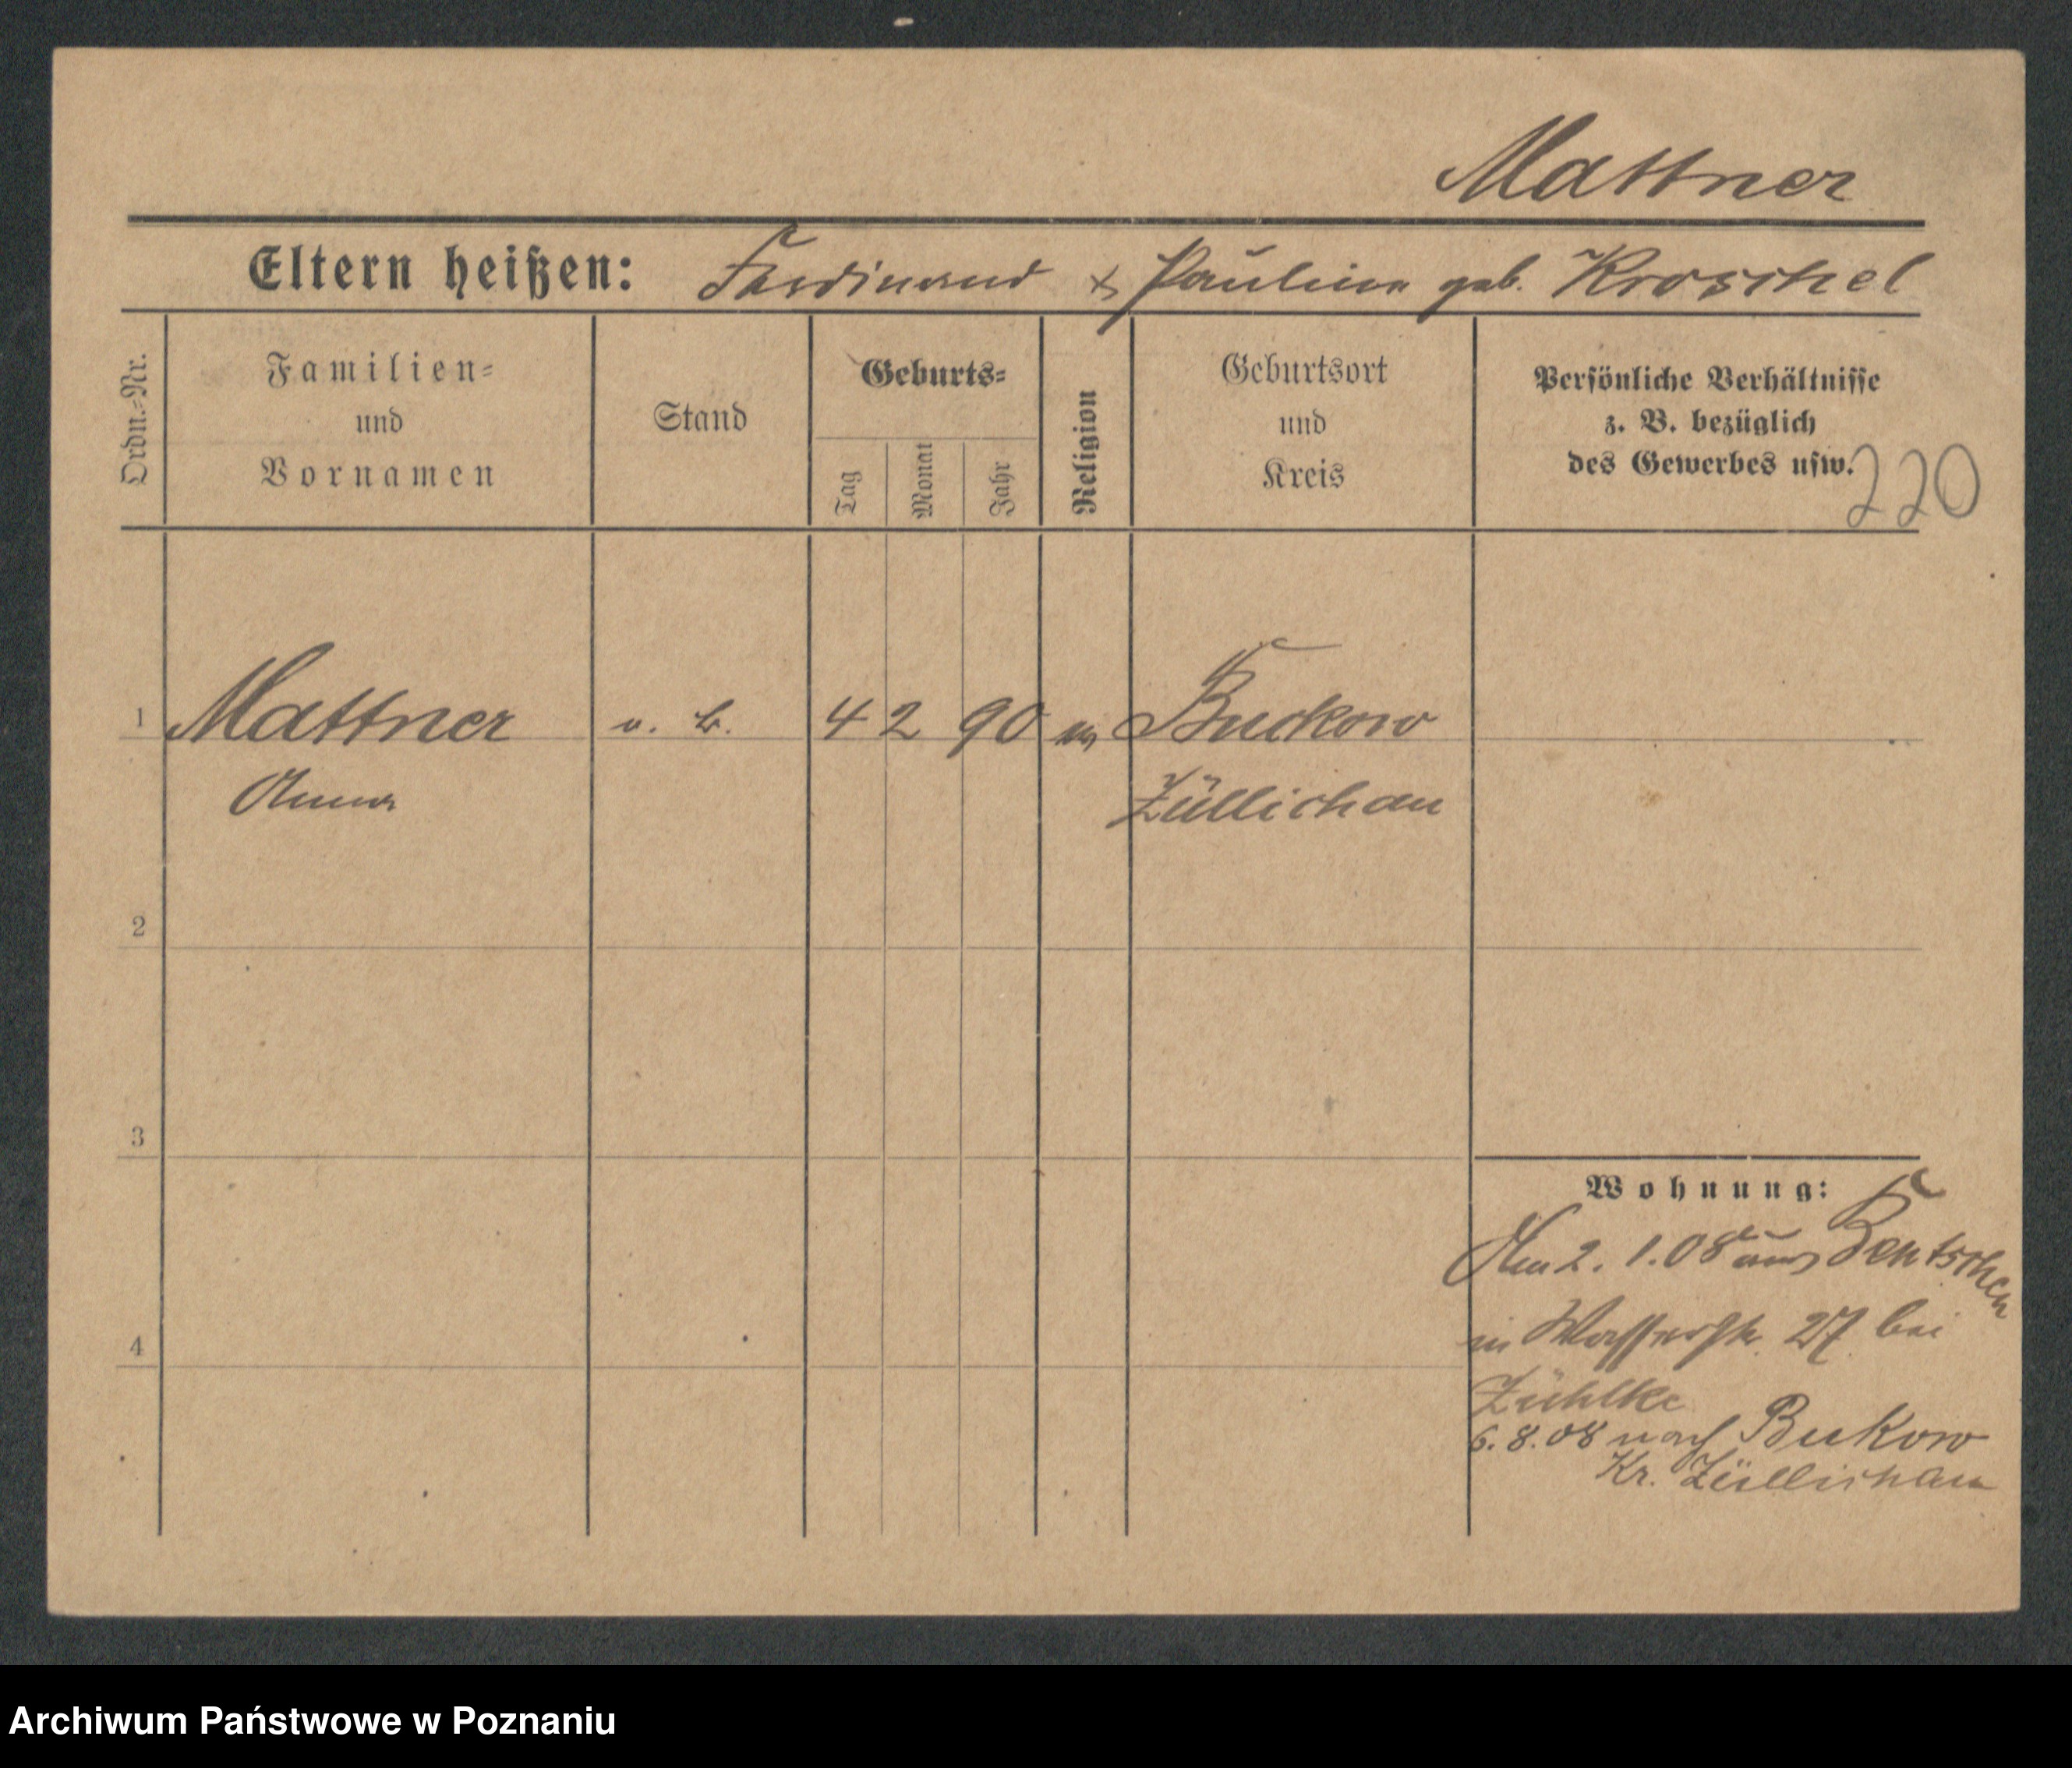 Mattner
Eltern heißen: Ferdinand & Pauline geb. Kroschel
Ordn.=Nr.
Familien=
und
Vornamen
Stand
Geburts=
Tag
Monat
Jahr
Religion
Geburtsort
und
Kreis
Persönliche Verhältnisse
z. B. bezüglich
des Gewerbes usw.
220
1 Mattner o. B. 4 2 90 ev Buckow
Anna Züllichau
2
3
4
Wohnung:
Am 2. 1.08 aus Bentschen
in Wasserstr. 27 bei
Zühlke
6.8.08 nach Bukow
Kr. Züllichau
Archiwum Państwowe w Poznaniu